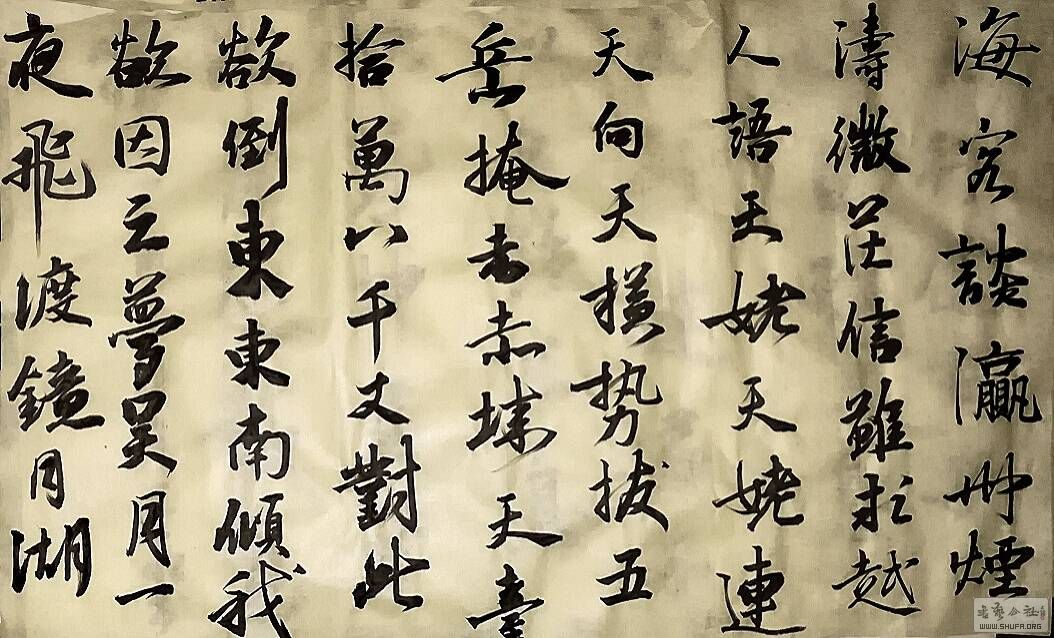 海客談瀛州煙
濤微茫信難求越
人語天姥天姥連
天向天橫勢拔五
岳掩赤赤城天臺
拾萬八千丈對此
欲倒東東南傾我
欲因之夢吳月一
夜飛渡鏡月湖
书艺公社
WWW.SHUFA.ORG